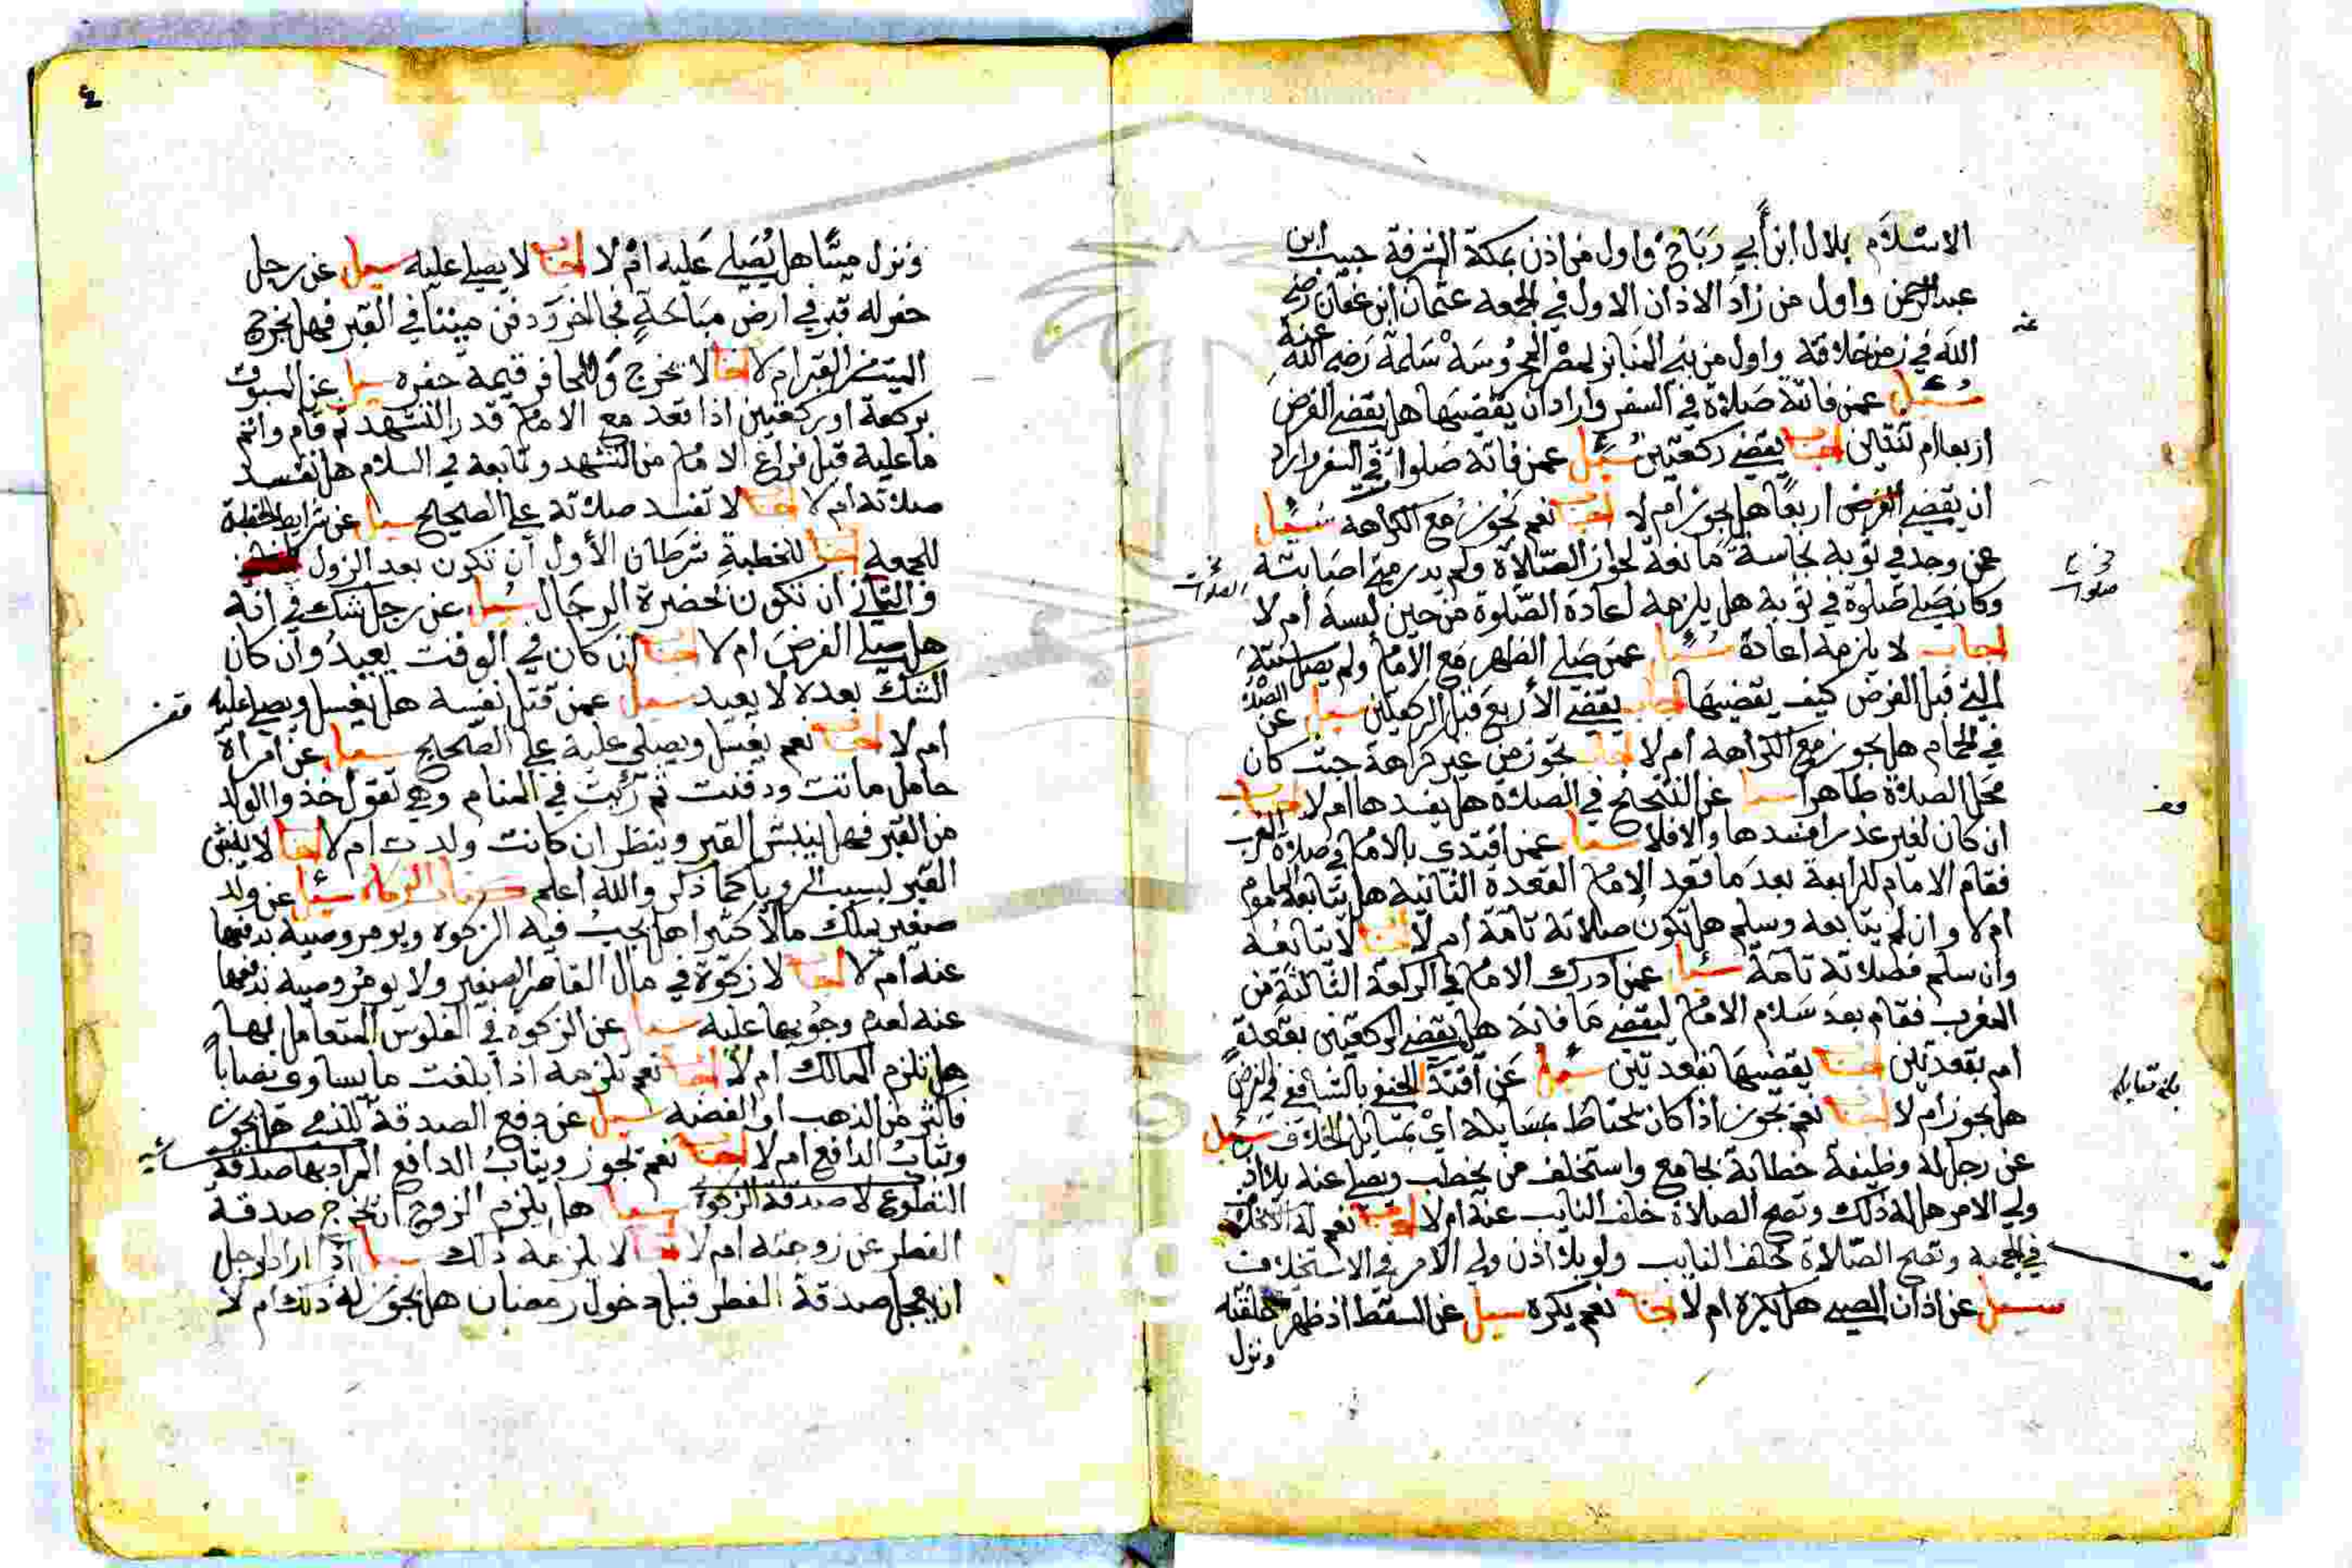 الاسْلاَم بلال ابن أبي رَبَاحْ واول من اذن بمكة المشرفة حبيب ابن
عبد الرحمن واول من زادَ الاذان الاول في الجمعه عثمان ابن عفان رضي
الله عنه في زمن خلافته واول من بنى المنابر لمصر المحروسَة سَلمة رَضي الله عنه
سُئل عمن فاتته صَلاة في السفر واراد ان يقضيها هل يقضي الفرض
اربعا ام ثنتين اجاب يقضي ركعتين سُئل عمن فاتته صَلوات في السفر واراد
ان يقضي الفرض اربعًا هل يجوز ام لا اجاب نعم تجوز مع الكراهة سُئل
عمن وجد في ثوبه نجاسة مانعة لجواز الصّلاة ولم يدر متى اصابته
وكان يصَلي صَلوة في ثوبه هل يلزمه اعادة الصّلوة من حين لبسه أم لا
اجاب لا يلزمه اعادة سُئل عمن صَلى الظهر مَع الامام ولم يصل سنته
التي قبل الفرض كيف يقضيها اجاب يقضي الأربع قبل الركعتين سئل عن الصلاة
في الحمام هل يجوز مع الكراهه أم لا اجاب تجوز من غير كراهة حيث كان
مَحَل الصلاة طاهرا سئل عن التنحنح في الصلاة هل يفسدها ام لا اجاب
ان كان لغير عذر افسدها والا فلا سئل عمن اقتدى بالامام في صلاة المغرب
فقام الامام للرابعة بعد مَا قعد الامام القعدة الثانية هل يتابعه الماموم
ام لا وان لم يتابعه وسلم هل تكون صلاته تامّة ام لا اجاب لا يتابعه
وان سلم فصلاته تامة سئل عمن ادرك الامام في الركعة الثالثة من
المغرب فقام بعد سَلام الامام ليقضي مَا فاته هل يقضي الركعتين بقعدة
ام بقعدتين اجاب يقضيهَا بقعدتين سُئل عَن اقتدآ الحنفي بالشافعي في الفرض
هل يجوز ام لا اجاب نعم تجوز اذا كان يحتاط بمسَايله اي بمسَايل الخلاف سئل
عن رجل له وظيفة خطابة بجامع واستخلف من يخطب ويصلي عنه بلا اذن
ولي الامر هل له ذلك وتصح الصلاة خلف النايب عنه أم لا اجاب نعم له الاستخلاف
في الجمعه وتصح الصّلاة خلف النايب ولو بلا اذن ولي الامر في الاستخلاف
سئل عن اذان الصبي هل يكره ام لا اجاب نعم يكره سئل عن السقط اذ ظهر خلقته
ونزل
ونزل ميتًا هل يُصَلي عَليه امْ لا اجاب لا يصلي عليه سئل عن رجل
حفر له قبر في ارض مبَاحَةٍ فجا اخر ودفن ميتا في القبر فهل يخرج
الميت من القبر ام لا اجاب لا يخرج وللحافر قيمة حفره سئل عن المسبوق
بركعة او ركعتين اذا قعد مع الامام قدر التشهد ثم قام واتم
ما عليه قبل فراغ الامام من التشهد وتابعه في السلام هل تفسد
صلاته أم لا اجاب لا تفسد صلاته على الصحيح سئل عن شرايط الخطبة
للجمعه اجاب للخطبةِ شرَطان الأول أن تكون بعد الزول
والثاني ان تكون بحضرة الرجال سُئل عن رجل شك في انه
هل صلى الفرض ام لا اجاب ان كان في الوقت يعيدُ وان كان
الشك بعده لا يعيد سئل عمن قتل نفسه هل يغسل ويصلي عليه
ام لا اجاب نعم يغسل ويصلى عليه على الصّحيح سئل عن امراة
حامل ماتت ودفنت ثم رُئيت في المنام وهي تقول خذوا الولد
من القبر فهل ينبش القبر وينظر ان كانت ولدت ام لا اجاب لا ينبش
القبر بسبب الرويا كما ذكر والله أعلم كتاب الزكاة سئل عن ولد
صغير يملك مالاً كثيرا هل يجبُ فيه الزكوة ويومر وصيه بدفعها
عنه ام لا اجاب لا زكوة في مال القاصر الصغير ولا يومر وصيه بدفعها
عنه لعدم وجوبها عليه سئل عن الزكوة في الفلوس المتعامل بها
هل تلزم المالك ام لا اجاب نعم تلزمه اذا بلغت ما يساوي نصاباً
فاكثر من الذهب او الفضه سئل عن دفع الصدقة للذمي هل يجوز
ويثابُ الدافع ام لا اجاب نعم تجوز ويثابُ الدافع المراد بها صدقة
التطوع لا صدقة الزكوة سئل هل يلزم الزوج ان يخرج صدقة
الفطر عن زوجته ام لا اجاب لا يلزمه ذلك سئل اذا اراد الرجل
ان يعجل صدقة الفطر قبل دخول رمضان هل يجوز له ذلك ام لا